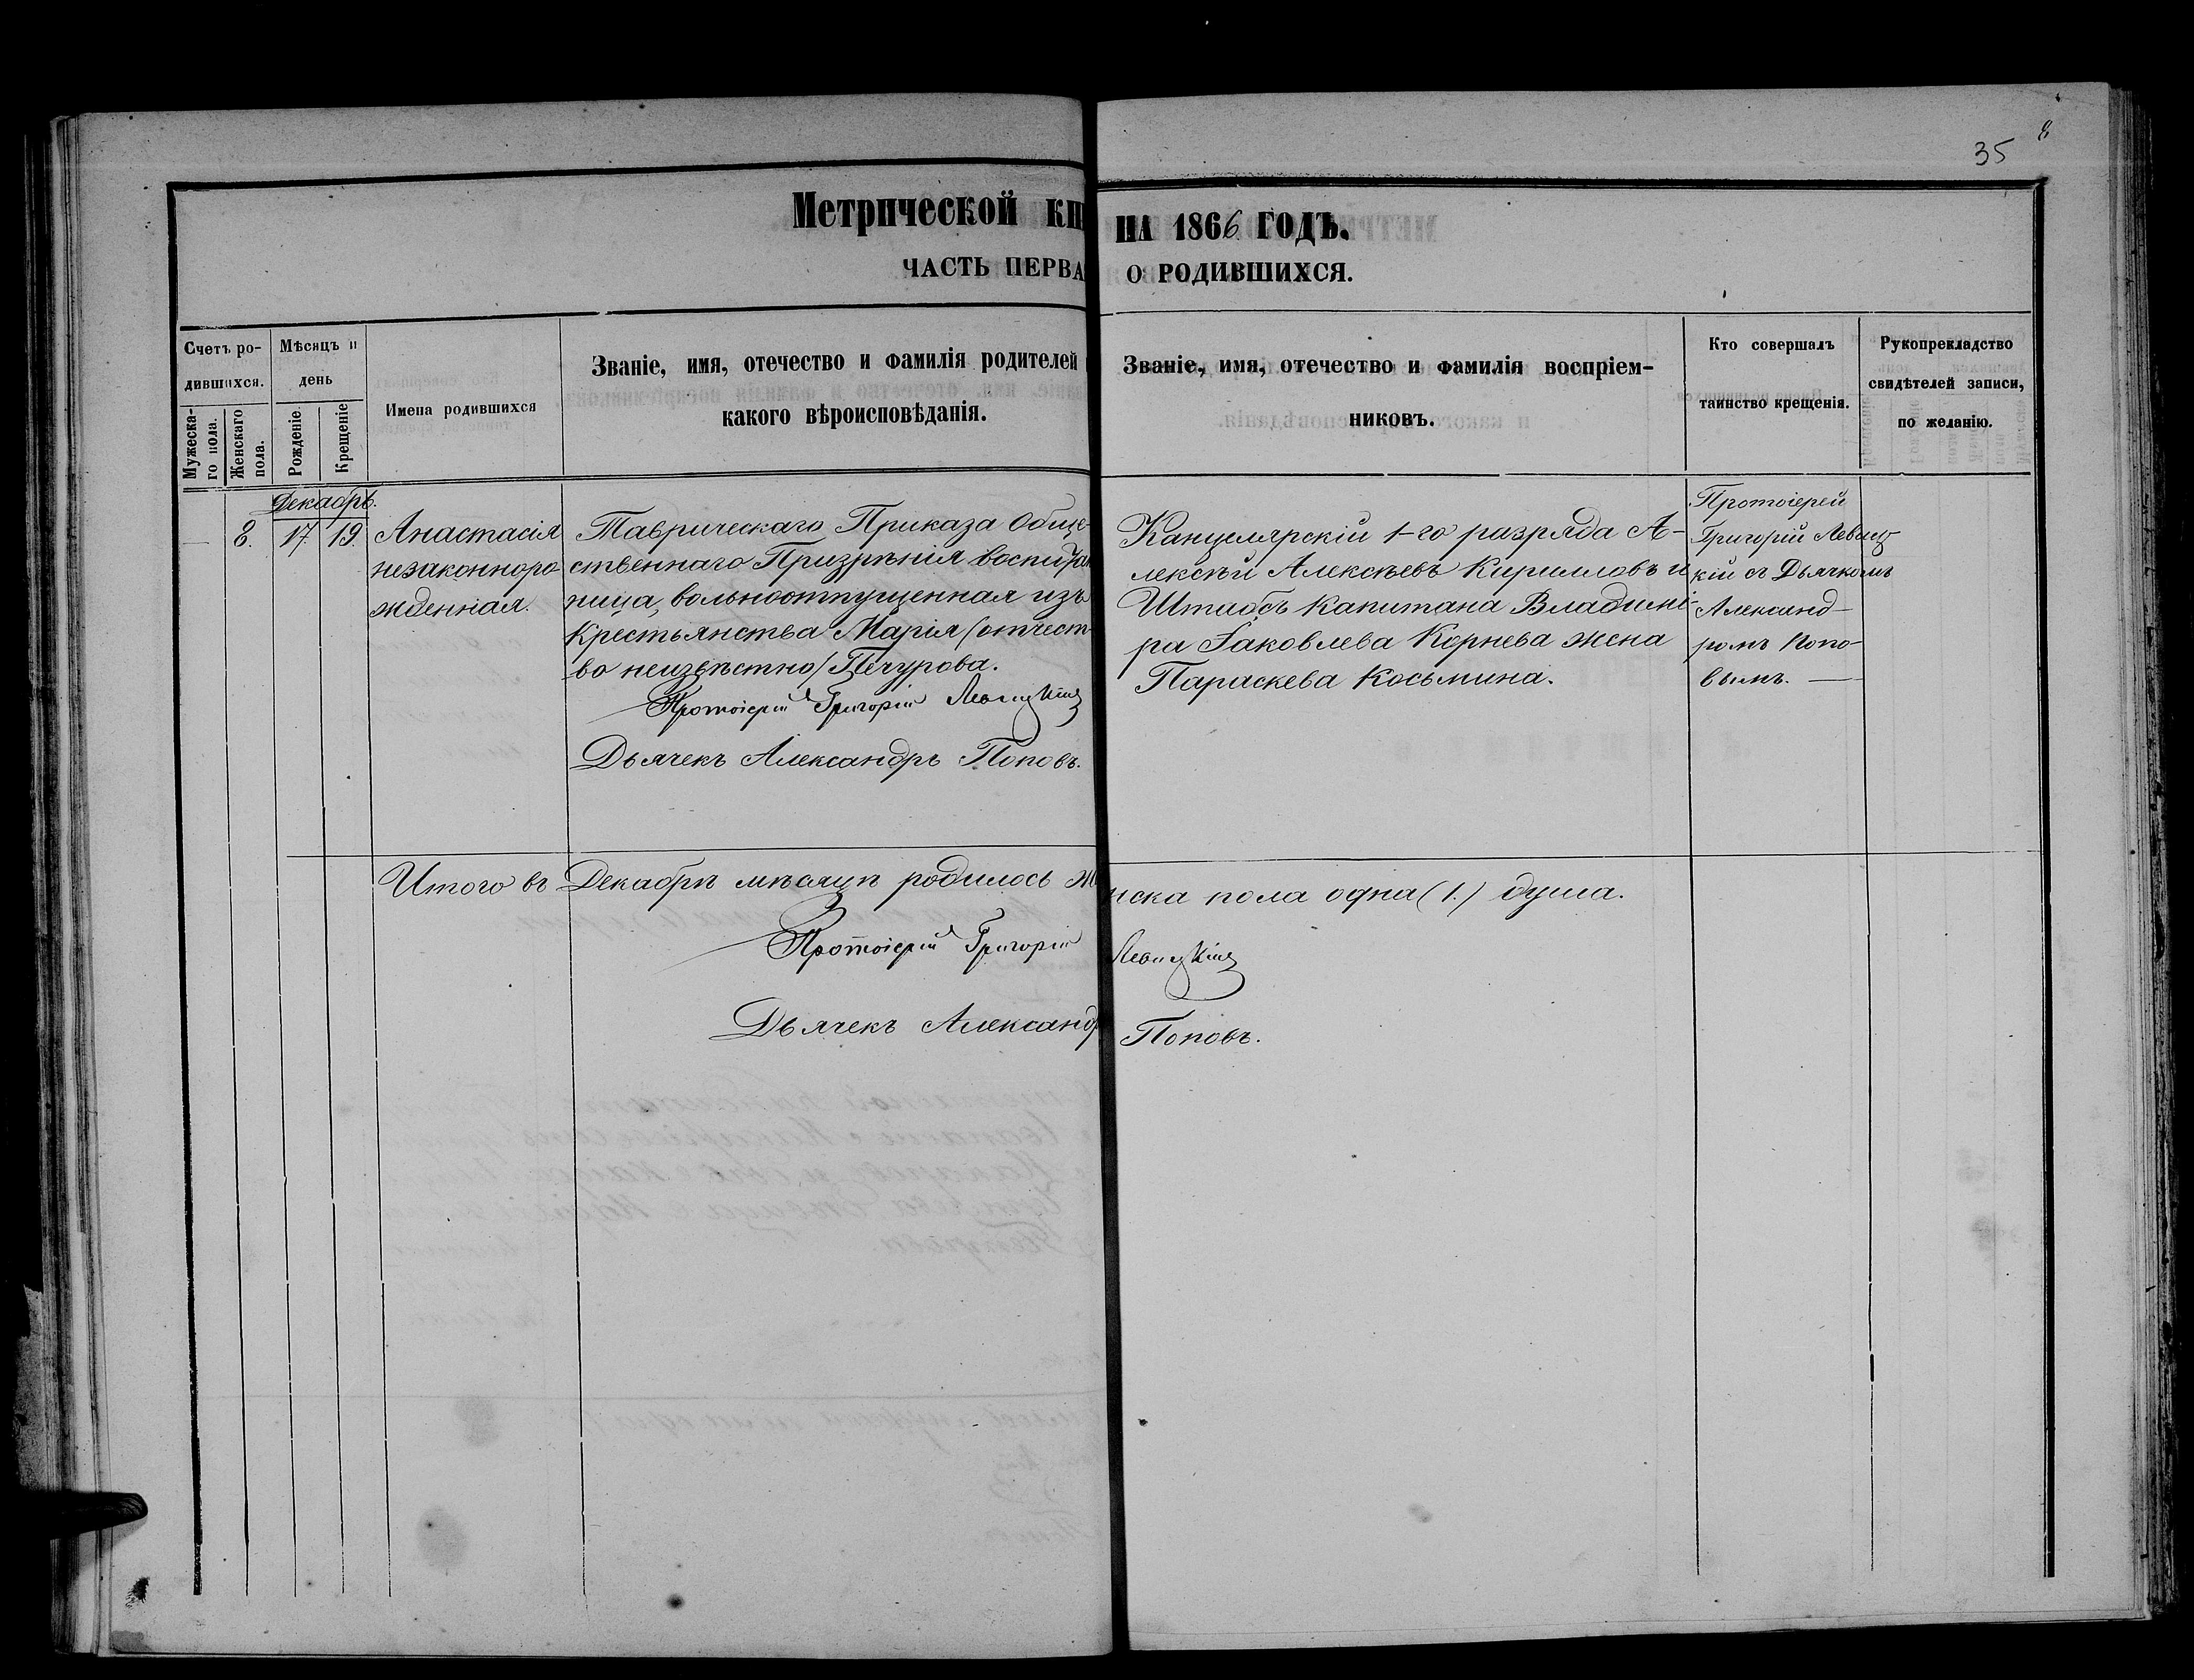 35
8
Метрической кн
НА 1866 ГОДЪ.
ЧАСТЬ ПЕРВА
О РОДИВШИХСЯ.
Счетъ ро-
дившихся.
Мужеска-
го пола.
Женскаго
пола.
Мѣсяцъ и
день
Рожденіе.
Крещеніе
Имена родившихся
Званіе, имя, отечество и фамилія родителей
какого вѣроисповѣданія.
Званіе, имя, отечество и фамилія воспріем-
никовъ.
Кто совершалъ
таинство крещенія.
Рукоприкладство
свидѣтелей записи,
по желанію.
Декабрь.
8. 17. 19.
Анастасія
незаконноро
жденная.
Таврическаго Приказа Обще-
ственнаго Призрѣнія воспитан
ница, вольноотпущенная изъ
крестьянства Марія (отчест-
во неизвѣстно) Печурова.
Протоіерей Григорій Левицкій
Дьячекъ Александръ Поповъ.
Канцелярскій 1-го разряда А-
лексѣй Алексѣевъ Кирилловъ и
Штабсъ Капитана Владимі-
ра Іаковлева Корнева жена
Параскева Косьмина.
Протоіерей
Григорій Левиц-
кій съ Дьячкомъ
Александ-
ромъ Попо-
вымъ. —
Итого въ Декабрѣ мѣсяцѣ родилось же
нска пола одна (1.) душа.
Протоіерей Григорій Левицкій
Дьячекъ Александр Поповъ.